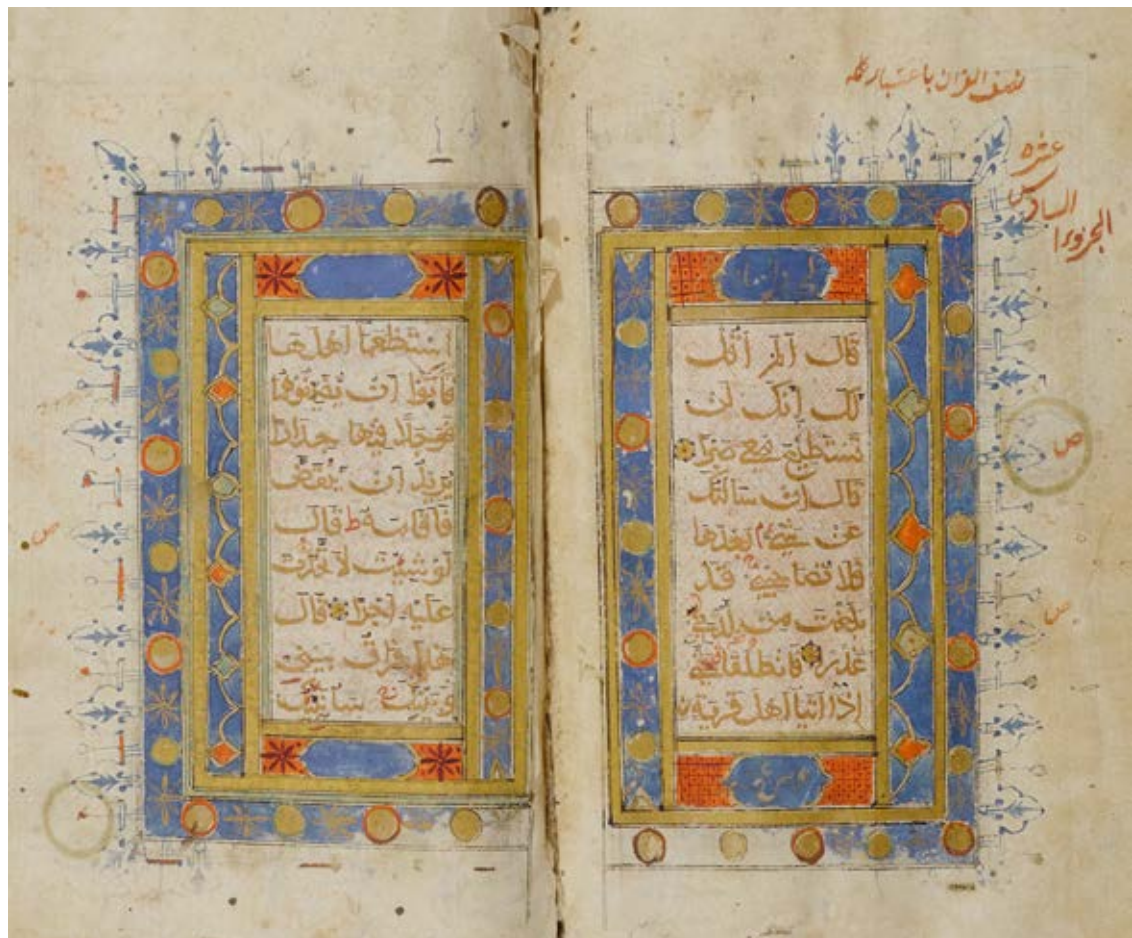 نصف القران باعتبار كله
الجزوء
السادس
عشره
قال ألم أقل
لك إنك لن
تستطيع معي صبرا
قال إن سألتك
عن شيء م بعدها
فلا تصاحبني قد
بلغت من لدني
عذرا فانطلقا حتى
إذا أتيا أهل قرية ن
ص
ص
استطعما أهلها
فأبوا أن يضيفوهما
فوجدا فيها جدارا
يريد أن ينقض
فأقامه ط قال
لو شئت لاتخذت
عليه أجرا قال
هذا فراق بيني
وبينك سأنبئك
ص